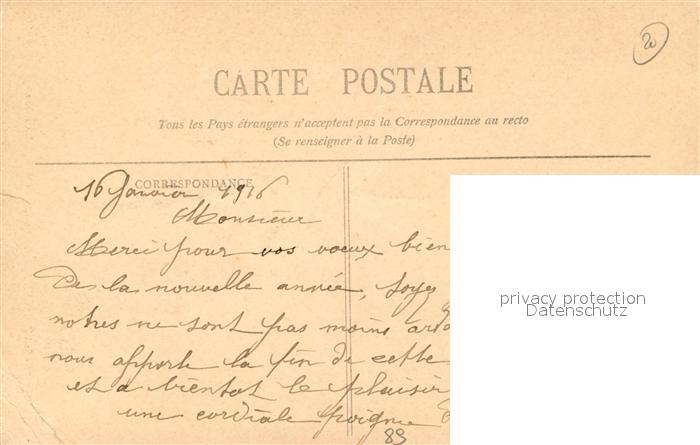 20
CARTE POSTALE
Tous les Pays étrangers n'acceptent pas la Correspondance au recto
(Se renseigner à la Poste)
CORRESPONDANCE
16 Janvier 1916
Monsieur
Merci pour vos voeux bien
De la nouvelle année, Soyez
notres ne sont pas moins
nous apporte la fin de cette
et a bientot le plaisir
une cordiale poignee
89
privacy protection
Datenschutz